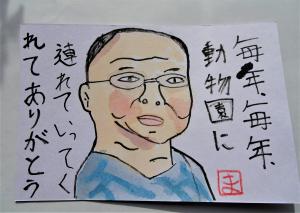 毎年、毎年、
動物園に
連れていってく
れてありがとう
ま